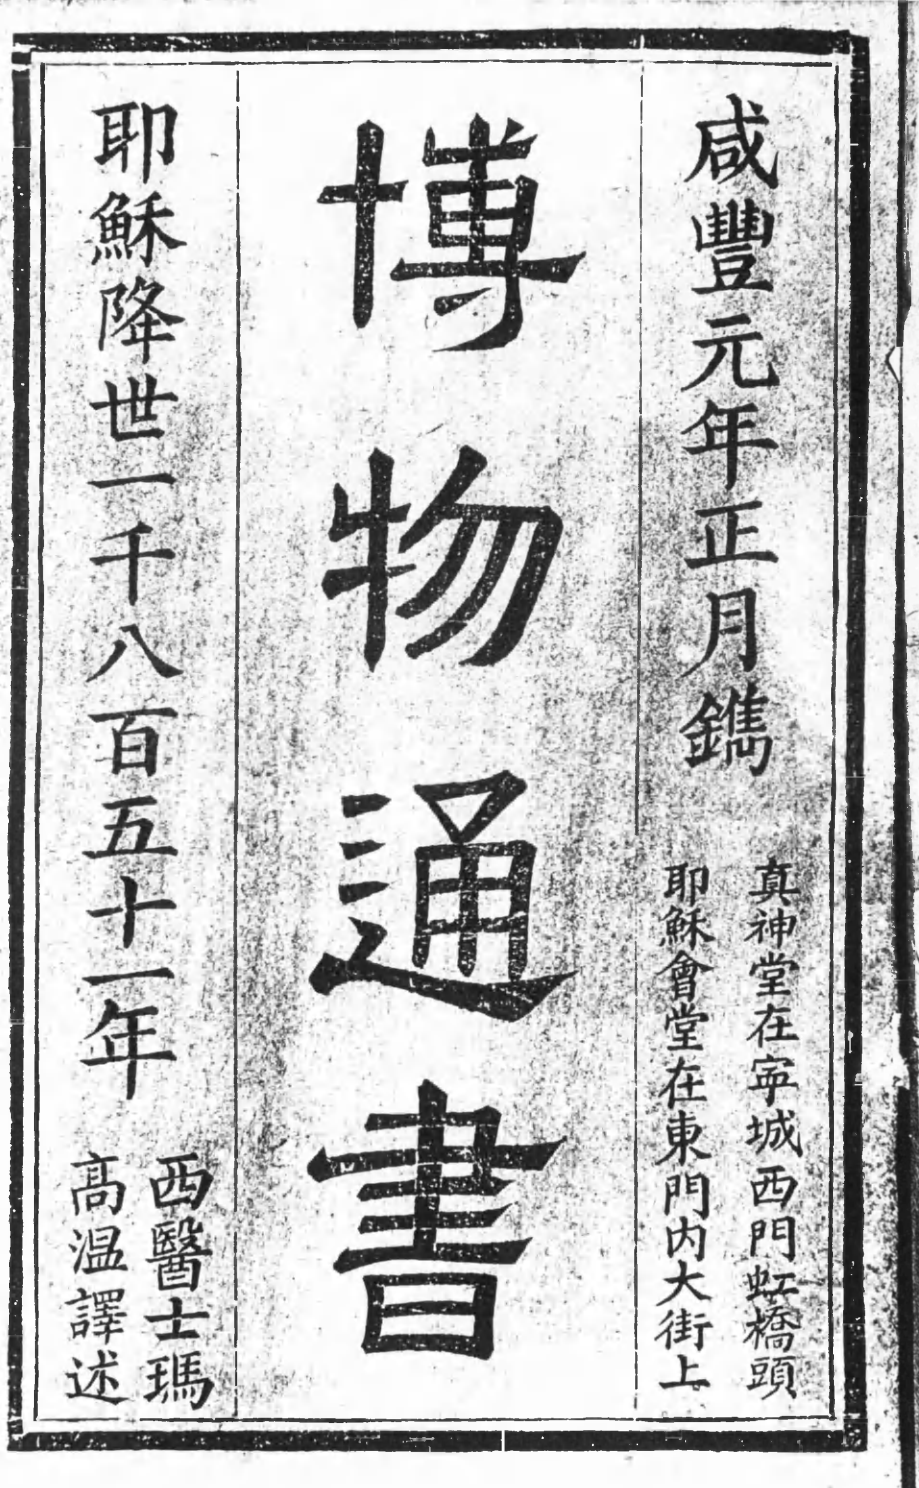 咸豐元年正月鐫
真神堂在寜城西門虹橋頭
耶穌會堂在東門内大街上
博物通書
耶穌降世一千八百五十一年
西醫士瑪
高温譯述